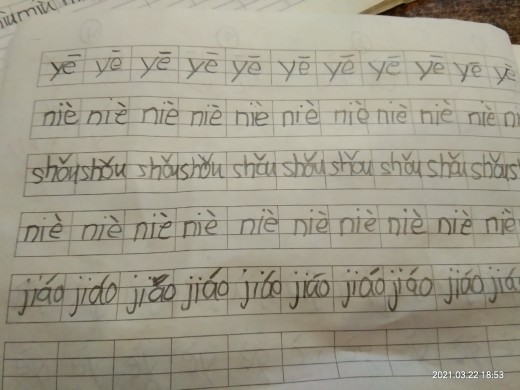 yē yē yē yē yē yē yē yē yē yē yē
niè niè niè niè niè niè niè niè niè niè
shǒu shǒu shǒu shǒu shǒu shǒu shǒu shǒu shǒu shǒu
niè niè niè niè niè niè niè niè niè niè
jiáo jiáo jiáo jiáo jiáo jiáo jiáo jiáo jiáo
2021.03.22 18:53